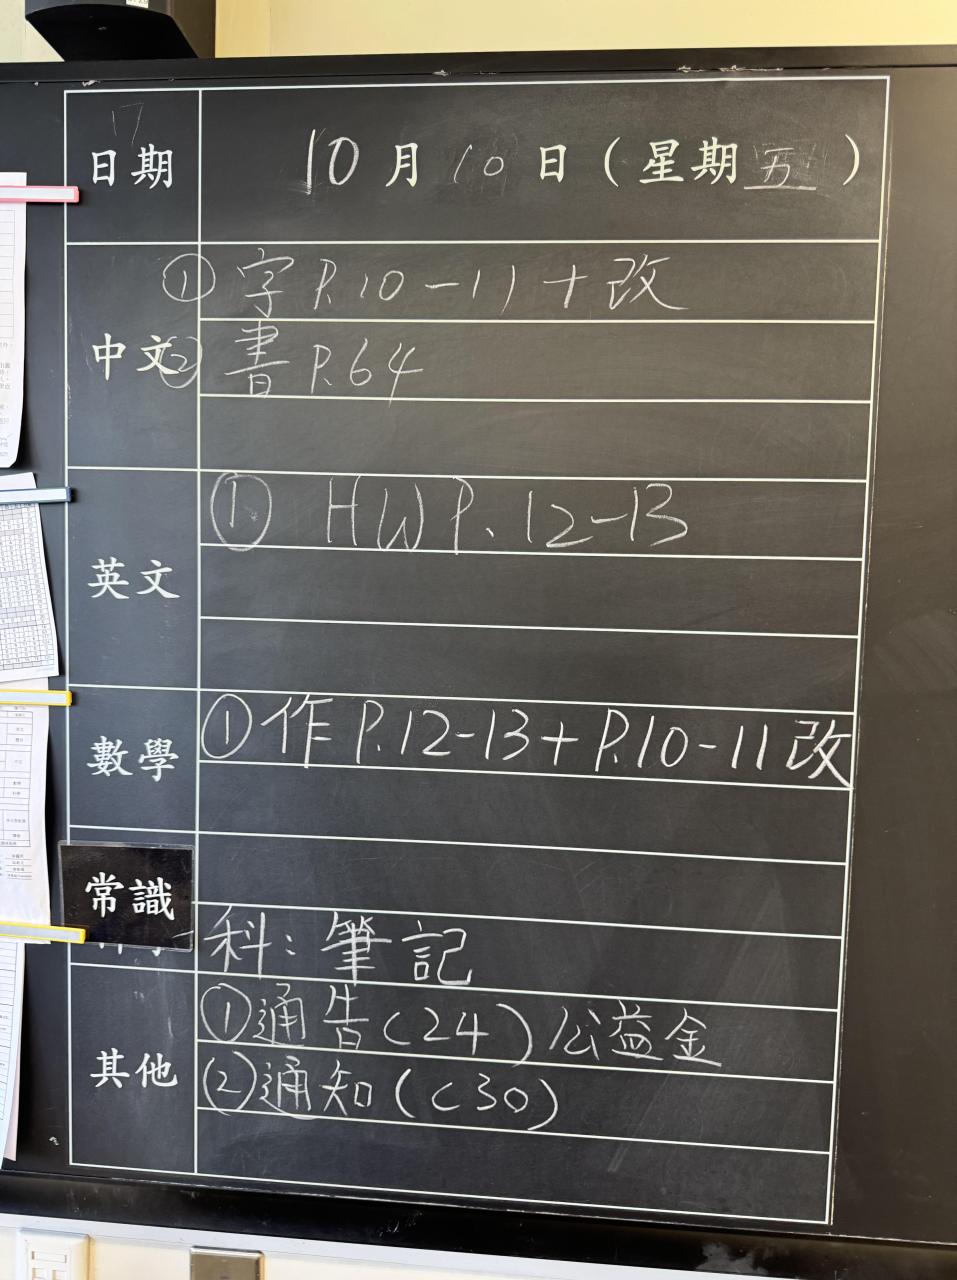 日期 10月10日（星期五）
中文 ① 字 P.10-11+改
② 書 P.64
英文 ① HW P.12-13
數學 ① 作 P.12-13+P.10-11改
常識
科：筆記
其他 ① 通告(24) 公益金
② 通知(C30)